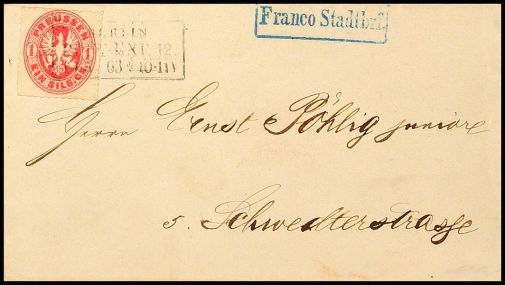 PREUSSEN
1 1
EIN SILB.GR.
BERLIN
12.
63 10-11V
Franco Stadtbrf.
Herrn Ernst Pöhlig juniore
5. Schwedterstrasse